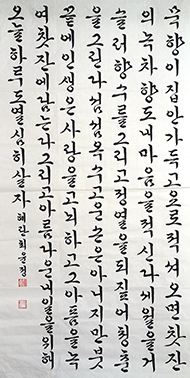 묵향이집안가득고요로적셔오면찻잔
의녹차향도내마음을적신다세월을거
슬러향수를그리고정열을되짚어청춘
을그린다섬섬옥수고운손은아니지만붓
끝에인생은사랑을고뇌하고그아픔을녹
여찻잔에담는다그리고아름다운내일을위해
오늘하루도열심히살자 혜란최윤정